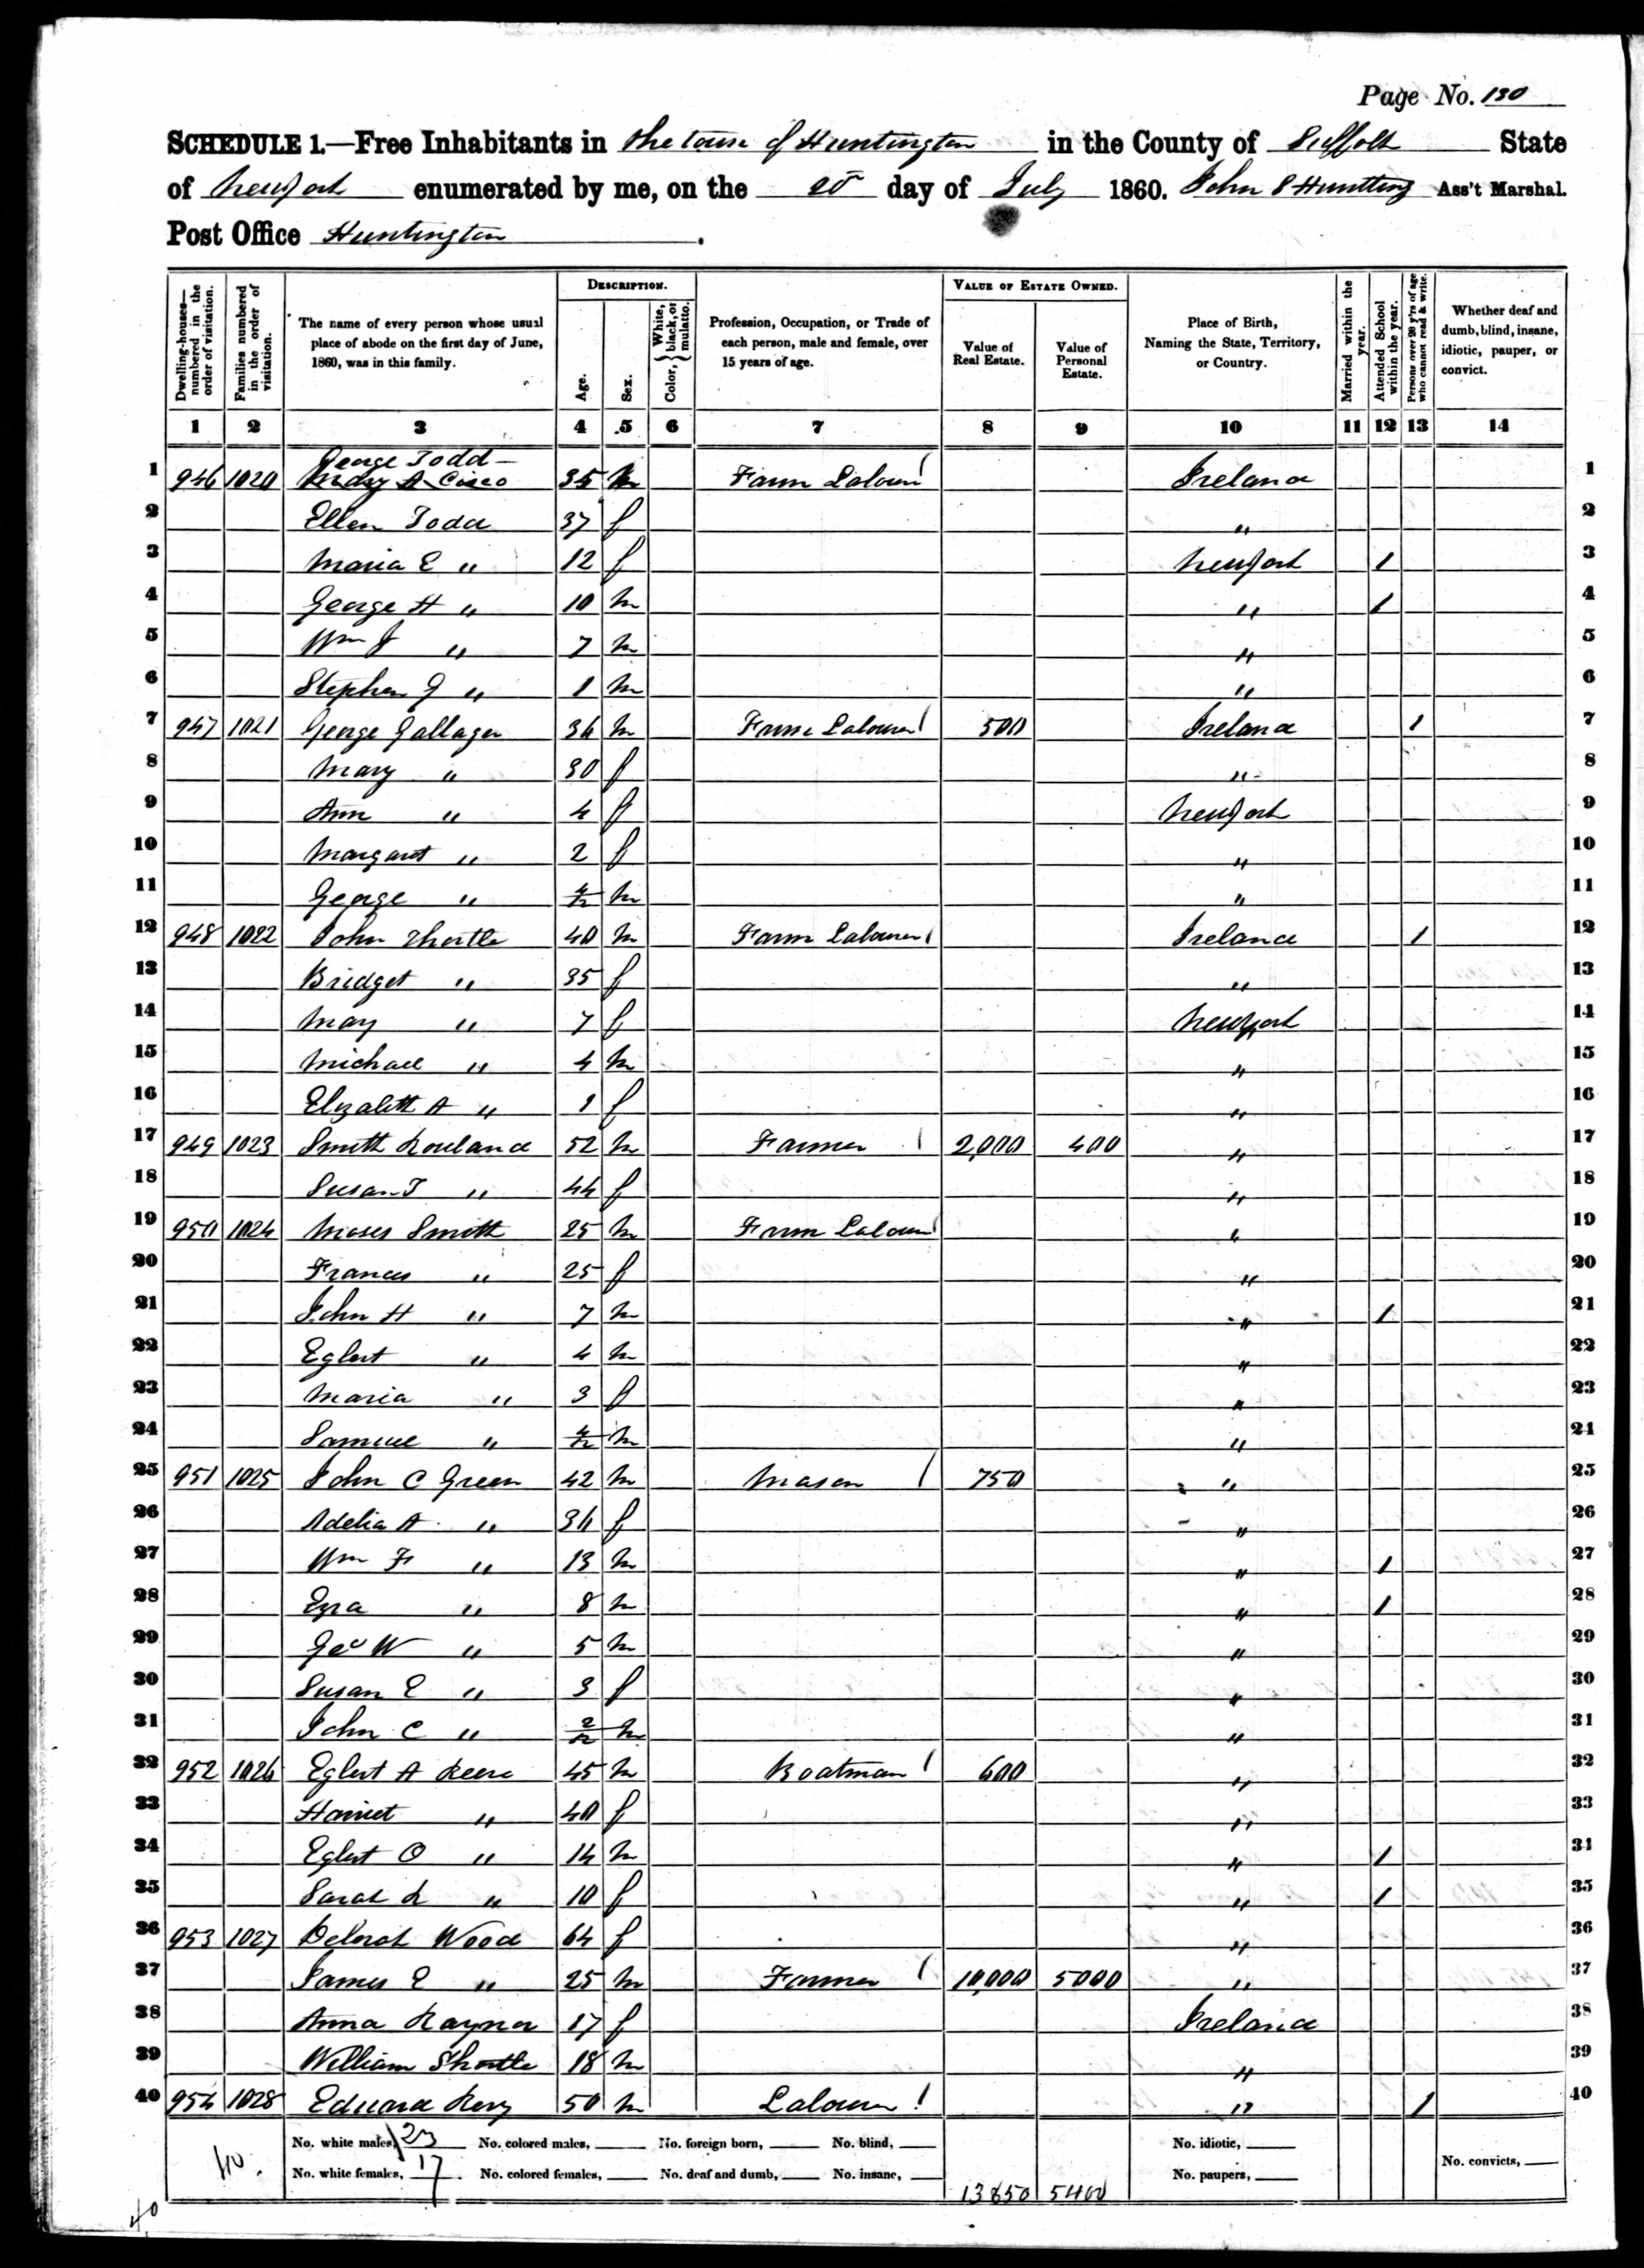 Page No. 130
SCHEDULE 1.—Free Inhabitants in the town of Huntington in the County of Suffolk State
of New York enumerated by me, on the 20 day of July 1860. John S Huntting Ass't Marshal.
Post Office Huntington.
Dwelling-houses—numbered in the order of visitation.
Families numbered in the order of visitation.
The name of every person whose usual place of abode on the first day of June, 1860, was in this family.
DESCRIPTION.
Age.
Sex.
Color, { White, black, or mulatto.
Profession, Occupation, or Trade of each person, male and female, over 15 years of age.
VALUE OF ESTATE OWNED.
Value of Real Estate.
Value of Personal Estate.
Place of Birth, Naming the State, Territory, or Country.
Married within the year.
Attended School within the year.
Persons over 20 y'rs of age who cannot read & write.
Whether deaf and dumb, blind, insane, idiotic, pauper, or convict.
1 2 3 4 5 6 7 8 9 10 11 12 13 14
George Todd
1 946 1020 Mary A Cisco 35 m Farm Labourer 1 Ireland 1
2 Ellen Todd 37 f " 2
3 Maria E " 12 f New York 1 3
4 George H " 10 m " 1 4
5 Wm J " 7 m " 5
6 Stephen G " 1 m " 6
7 947 1021 George Gallager 36 m Farm Labourer 1 500 Ireland 1 7
8 Mary " 30 f " 8
9 Ann " 4 f New York 9
10 Margaret " 2 f " 10
11 George " 4/12 m " 11
12 948 1022 John Shortle 40 m Farm Labourer 1 Ireland 1 12
13 Bridget " 35 f " 13
14 Mary " 7 f New York 14
15 Michael " 4 m " 15
16 Elizabeth A " 1 f " 16
17 949 1023 Smith Rouland 52 m Farmer 1 2,000 400 " 17
18 Susan T " 44 f " 18
19 950 1024 Moses Smith 25 m Farm Labourer 1 " 19
20 Frances " 25 f " 20
21 John H " 7 m " 1 21
22 Egbert " 4 m " 22
23 Maria " 3 f " 23
24 Samuel " 4/12 m " 24
25 951 1025 John C Green 42 m Mason 1 750 " 25
26 Adelia A " 36 f " 26
27 Wm F " 13 m " 1 27
28 Ezra " 8 m " 1 28
29 Geo W " 5 m " 29
30 Susan E " 3 f " 30
31 John C " 2/12 m " 31
32 952 1026 Egbert A 45 m Boatman 1 600 " 32
33 Harriet " 40 f " 33
34 Egbert O " 14 m " 1 34
35 Sarah L " 10 f " 1 35
36 953 1027 Deborah Wood 64 f " 36
37 James E " 25 m Farmer 1 10,000 5000 " 37
38 Anna Raynor 17 f Ireland 38
39 William Shortle 18 m " 39
40 954 1028 Edward 50 m Labourer 1 " 1 40
No. white males, 23 No. colored males, No. foreign born, No. blind, No. idiotic,
40. No. white females, 17 No. colored females, No. deaf and dumb, No. insane, 13850 5400 No. paupers, No. convicts,
40